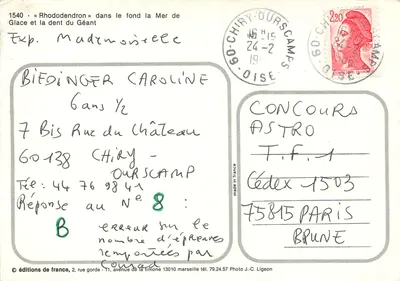 1540 - « Rhododendron » dans le fond la Mer de
Glace et la dent du Géant
Exp. Mademoiselle
BIEDINGER CAROLINE
6 ans 1/2
7 Bis Rue du Château
60138 CHIRY-
OURSCAMP
Tél: 44 76 98 41
Réponse au N° 8 :
B erreur sur le
nombre d'épreuves
remportées par
Conrad
60-CHIRY-OURSCAMPS
16H15
24-2
19
OISE
60-CHIRY-OURSCAMPS
OISE
2,20
made in france
CONCOURS
ASTRO
T.F.1
Cédex 1503
75815 PARIS
BRUNE
© éditions de france, 2, rue gorde - 11, avenue de la timone 13010 marseille tél. 79.24.57 Photo J.-C. Ligeon